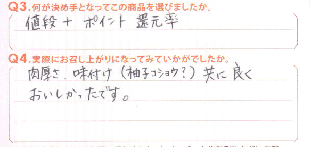 Q3.何が決め手となってこの商品を選びましたか。
値段 + ポイント 還元率
Q4.実際にお召し上がりになってみていかがでしたか。
肉厚さ、味付け(柚子コショウ?)共に良く
おいしかったです。